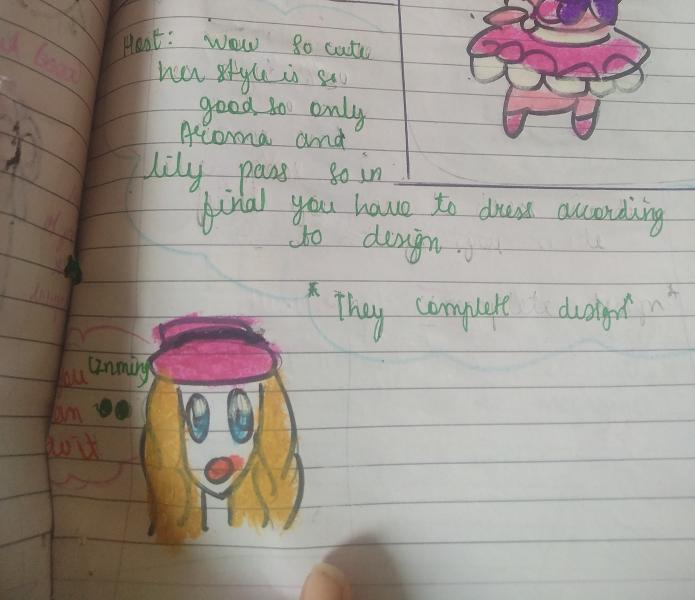 Host: wow so cute
her style is so
good so only
Aroma and
lily pass so in
final you have to dress according
to design.
*They complete design*